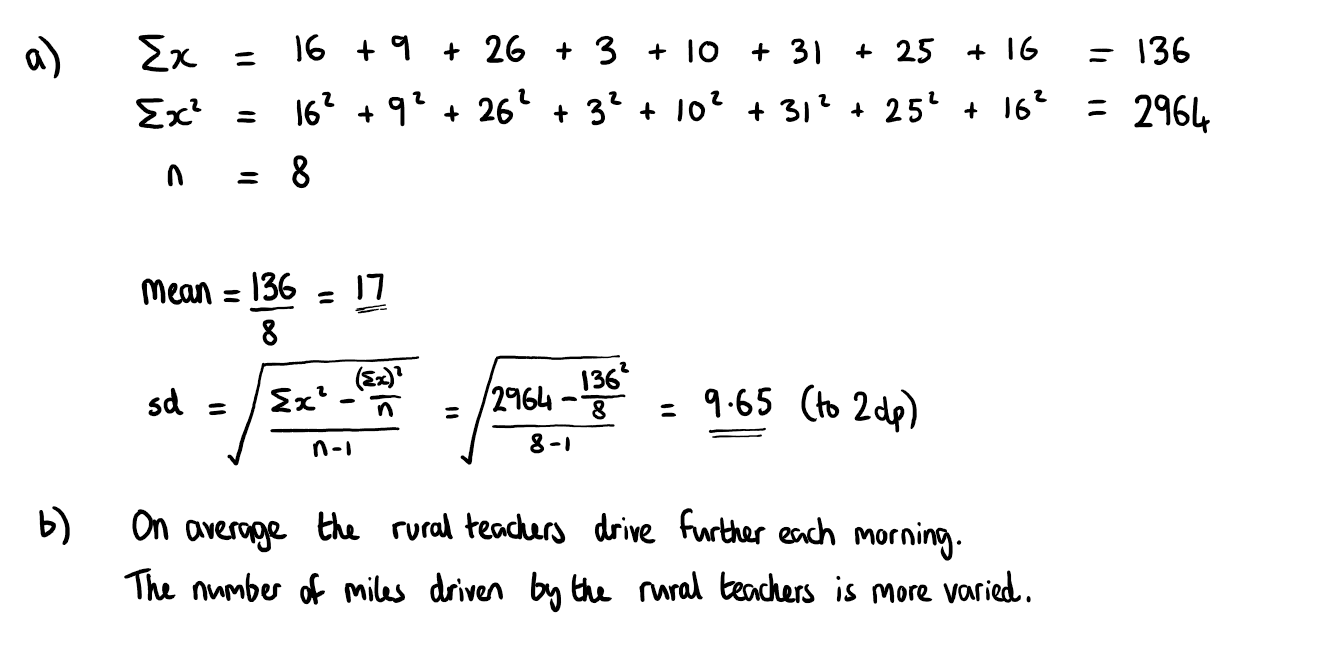 a) Σx = 16 + 9 + 26 + 3 + 10 + 31 + 25 + 16 = 136
Σx² = 16² + 9² + 26² + 3² + 10² + 31² + 25² + 16² = 2964
n = 8
Mean = 136/8 = 17
sd = √((Σx² - (Σx)²/n)/(n-1)) = √((2964 - 136²/8)/(8-1)) = 9.65 (to 2dp)
b) On average the rural teachers drive further each morning.
The number of miles driven by the rural teachers is more varied.